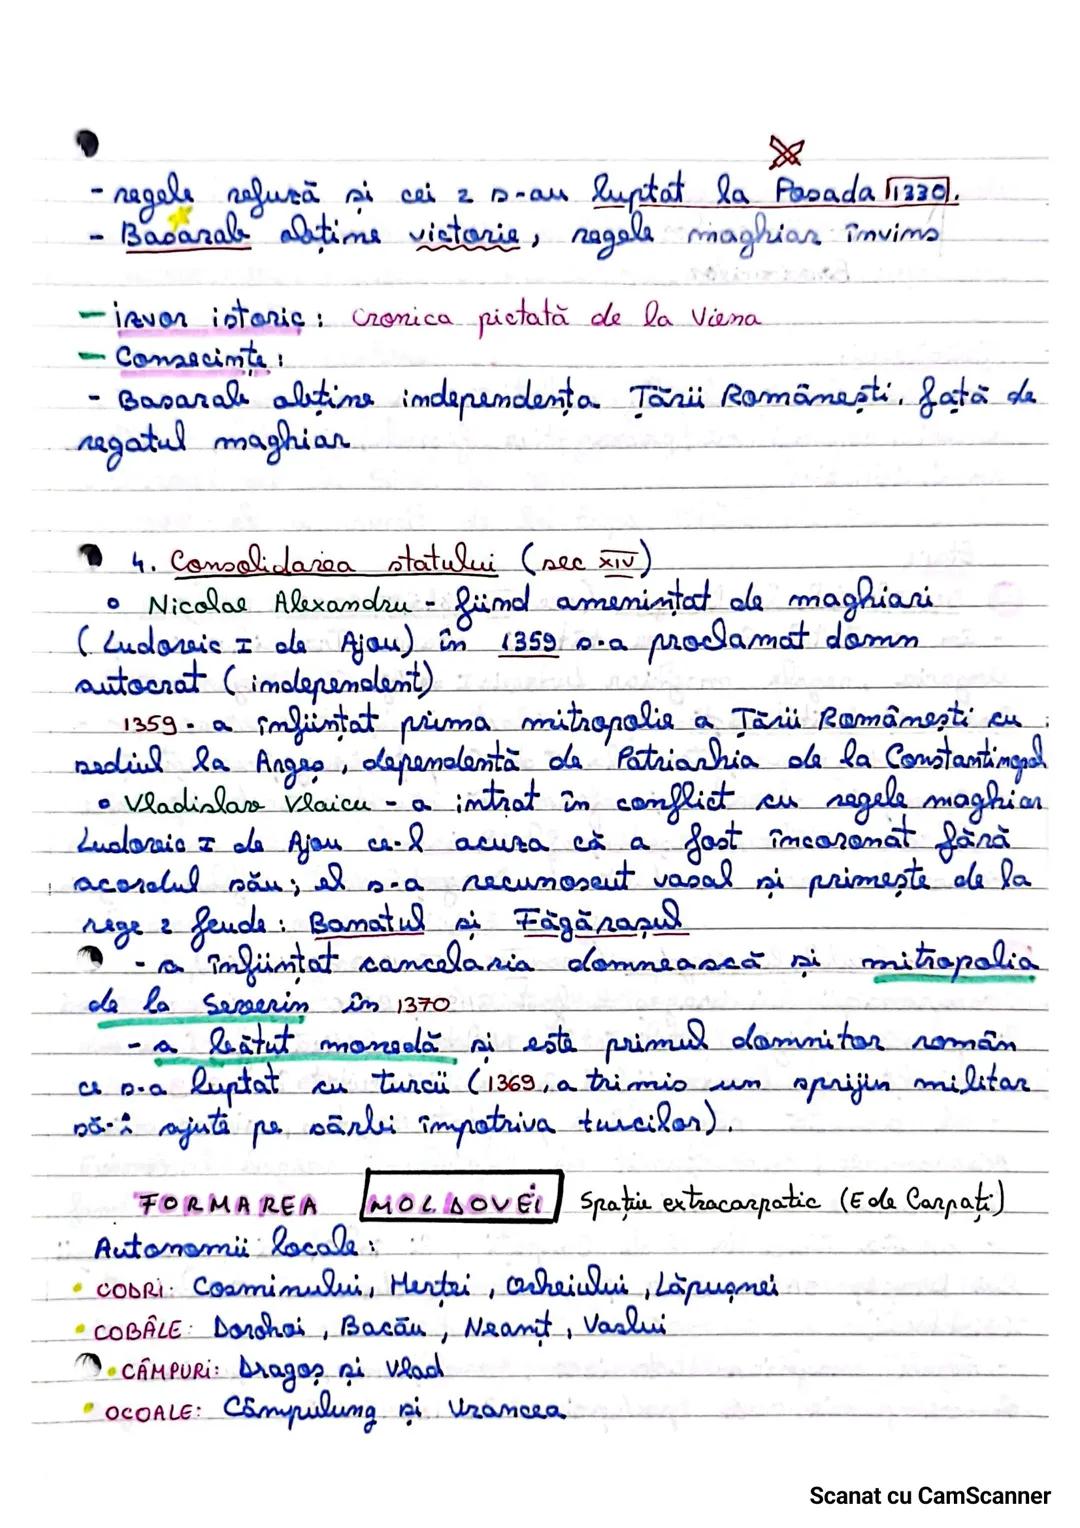 - regele refuză și cei 2 s-au luptat la Posada 1330.
- Basarab obține victorie, regele maghiar învins
- izvor istoric: Cronica pictată de la Viena
- Consecințe:
- Basarab obține independența Țării Românești, față de
regatul maghiar
4. Consolidarea statului (sec XIV)
• Nicolae Alexandru - fiind amenințat de maghiari
(Ludovic I de Ajou) în 1359 s-a proclamat domn
autocrat (independent)
1359 - a înființat prima mitropolie a Țării Românești cu
sediul la Argeș, dependentă de Patriarhia de la Constantinopol
• Vladislav Vlaicu - a intrat în conflict cu regele maghiar
Ludovic I de Ajou ce-l acuza că a fost încoronat fără
acordul său; el s-a recunoscut vasal și primește de la
rege 2 feude: Banatul și Făgărașul
- a înființat cancelaria domnească și mitropolia
de la Severin în 1370
- a bătut monedă și este primul domnitor român
ce s-a luptat cu turcii (1369, a trimis un sprijin militar
să-i ajute pe sârbi împotriva turcilor).
FORMAREA MOLDOVEI Spațiu extracarpatic (E de Carpați)
Autonomii locale:
• CODRI: Cosminului, Herței, Orheiului, Lăpușnei
• COBÂLE: Dorohoi, Bacău, Neamț, Vaslui
• CÂMPURI: Dragoș și Vlad
• OCOALE: Câmpulung și Vrancea
Scanat cu CamScanner